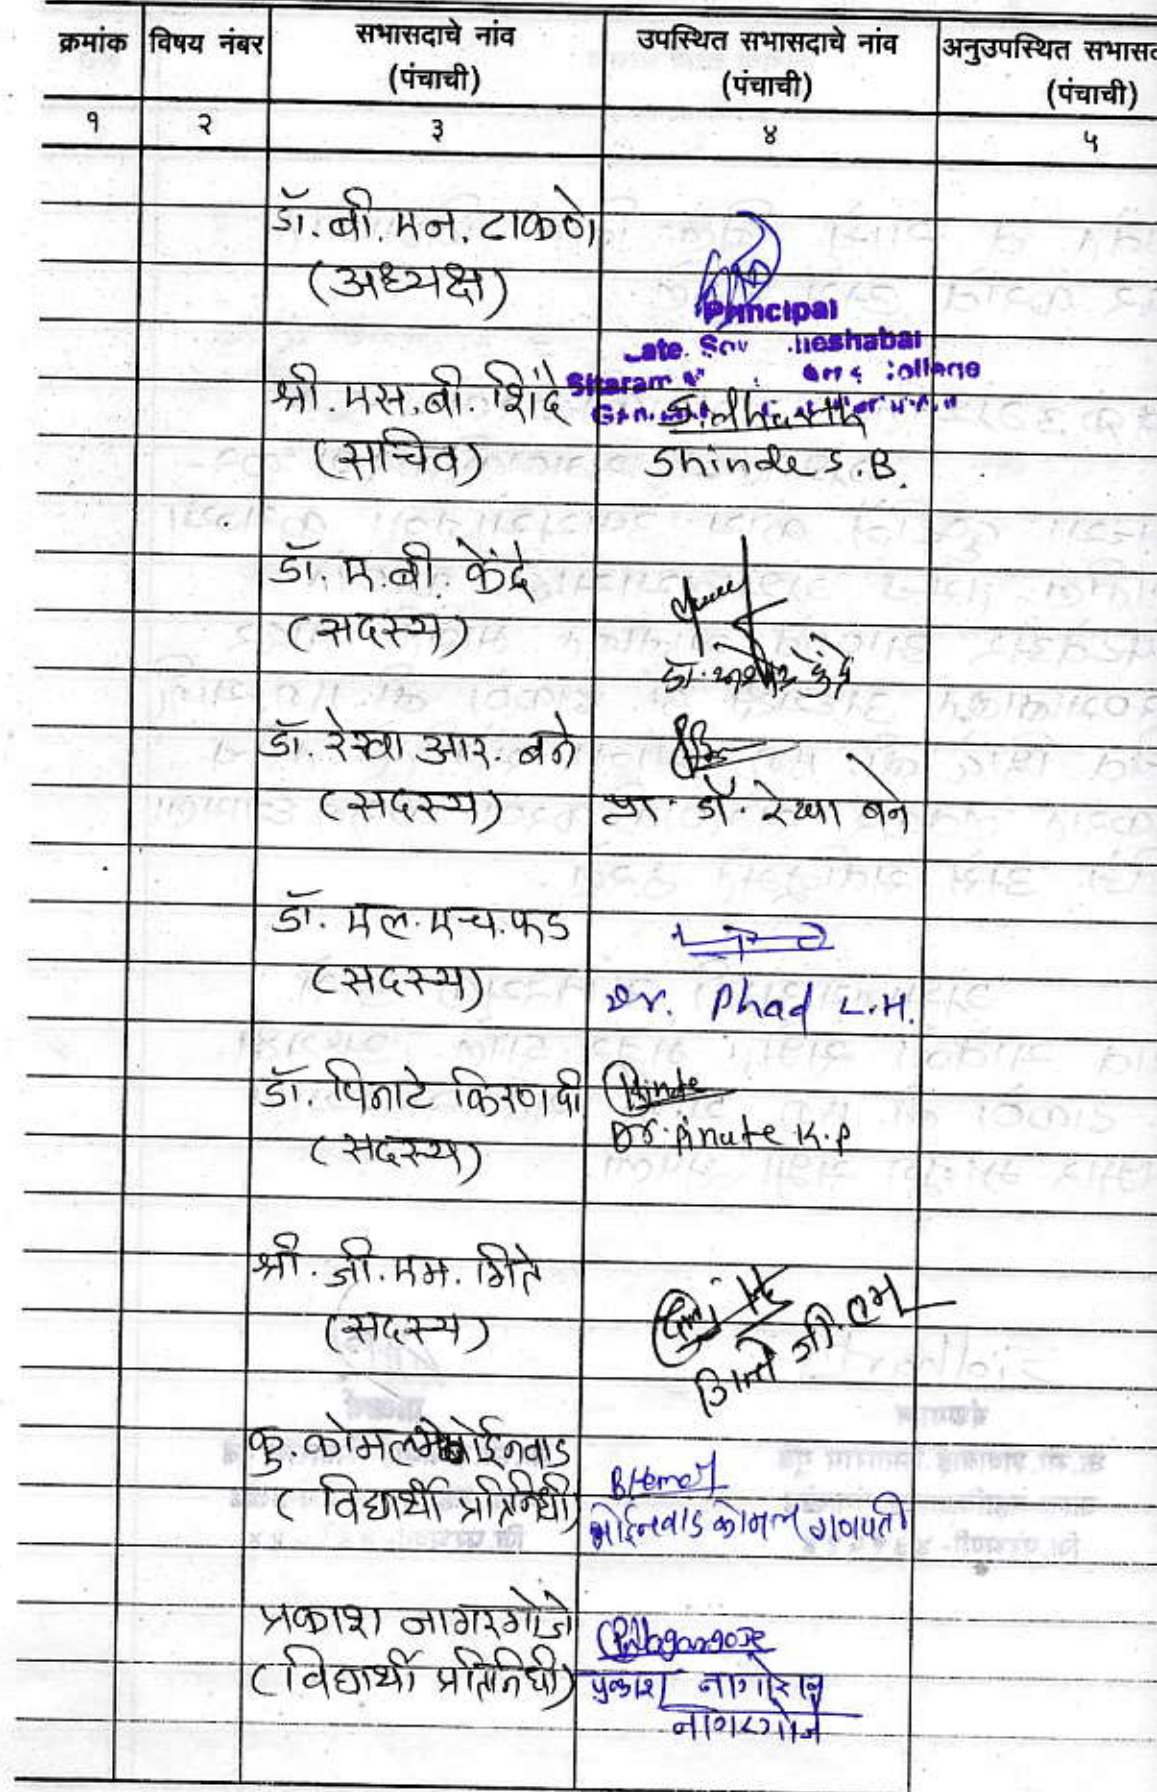 क्रमांक विषय नंबर सभासदाचे नांव (पंचाची) उपस्थित सभासदाचे नांव (पंचाची) अनुउपस्थित सभासद (पंचाची)
१ २ ३ ४ ५
डॉ. बी. एन. टाकणे
(अध्यक्ष)
Principal
Late. Sow
Sitaram
श्री. एस. बी. शिंदे
(सचिव) Shinde S.B.
डॉ. ए. बी. केंद्रे
(सदस्य)
डॉ. रेखा आर. बने
(सदस्य) प्रा. डॉ. रेखा बने
डॉ. एल. एच. फड
(सदस्य) Dr. Phad L.H.
डॉ. पिनाटे किरण पी
(सदस्य) Dr. Pinate K.P
श्री. जी. एम. गिते
(सदस्य) गिते जी. एम
कु. कोमल भोईनवाड
(विद्यार्थी प्रतिनिधी) भोईनवाड कोमल गणपती
प्रकाश नागरगोजे PNagargoje
(विद्यार्थी प्रतिनिधी) प्रकाश नागोराव
नागरगोजे